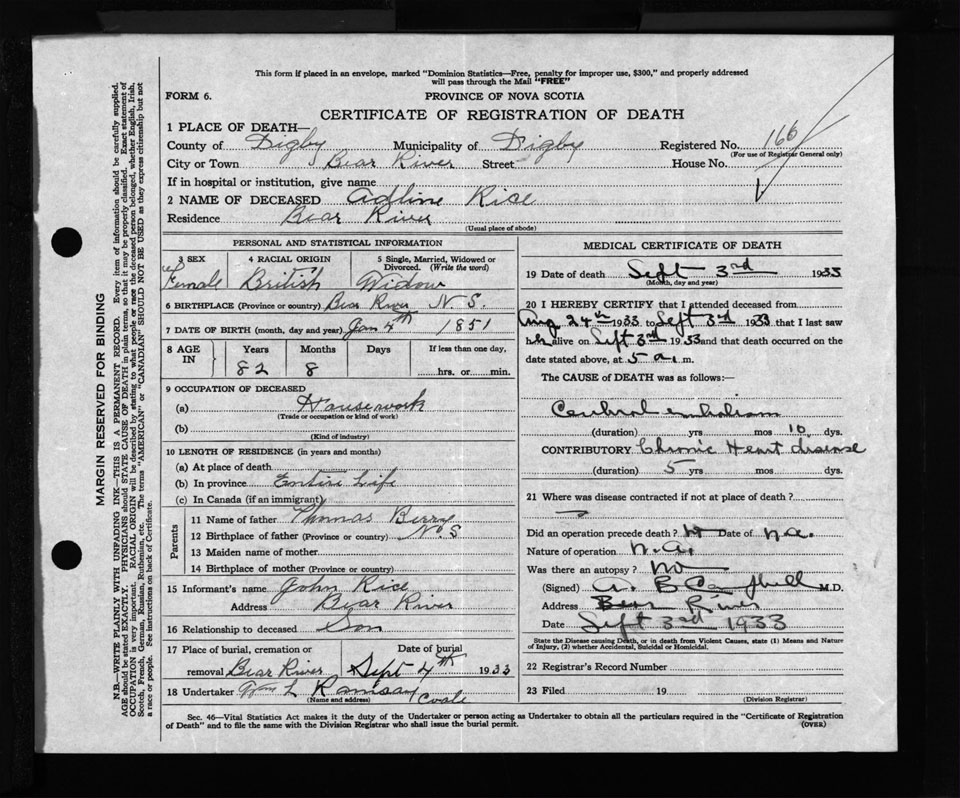 This form if placed in an envelope, marked "Dominion Statistics—Free, penalty for improper use, $300," and properly addressed
will pass through the Mail "FREE"
FORM 6.
PROVINCE OF NOVA SCOTIA
CERTIFICATE OF REGISTRATION OF DEATH
1 PLACE OF DEATH—
County of Digby Municipality of Digby Registered No. 166
(For use of Registrar General only)
City or Town Bear River Street House No.
If in hospital or institution, give name
2 NAME OF DECEASED Adline Rice
Residence Bear River
(Usual place of abode)
PERSONAL AND STATISTICAL INFORMATION
3 SEX 4 RACIAL ORIGIN 5 Single, Married, Widowed or
Divorced. (Write the word)
Female British Widow
6 BIRTHPLACE (Province or country) Bear River N. S.
7 DATE OF BIRTH (month, day and year) Jan 4th 1851
8 AGE IN Years Months Days If less than one day,
82 8 hrs. or min.
9 OCCUPATION OF DECEASED
(a) Housework
(Trade or occupation or kind of work)
(b)
(Kind of industry)
10 LENGTH OF RESIDENCE (in years and months)
(a) At place of death
(b) In province Entire Life
(c) In Canada (if an immigrant)
Parents
11 Name of father Thomas Berry
12 Birthplace of father (Province or country) N. S
13 Maiden name of mother
14 Birthplace of mother (Province or country)
15 Informant's name John Rice
Address Bear River
16 Relationship to deceased Son
17 Place of burial, cremation or Date of burial
removal Bear River Sept 4th 1933
18 Undertaker Wm L Ramsay
(Name and address)
MEDICAL CERTIFICATE OF DEATH
19 Date of death Sept 3rd 1933
(Month, day and year)
20 I HEREBY CERTIFY that I attended deceased from
Aug 24th 1933 to Sept 3rd 1933 that I last saw
her alive on Sept 3rd 1933 and that death occurred on the
date stated above, at 5 a. m.
The CAUSE of DEATH was as follows:—
Cerebral embolism
(duration) yrs mos 10 dys.
CONTRIBUTORY Chronic Heart disease
(duration) 5 yrs mos dys.
21 Where was disease contracted if not at place of death?
Did an operation precede death? No Date of n.a.
Nature of operation n.a.
Was there an autopsy? No
(Signed) A. B Campbell M.D.
Address Bear River
Date Sept 3rd 1933
State the Disease causing Death, or in death from Violent Causes, state (1) Means and Nature
of Injury, (2) whether Accidental, Suicidal or Homicidal.
22 Registrar's Record Number
23 Filed 19
(Division Registrar)
Sec. 46—Vital Statistics Act makes it the duty of the Undertaker or person acting as Undertaker to obtain all the particulars required in the "Certificate of Registration
of Death" and to file the same with the Division Registrar who shall issue the burial permit. (OVER)
MARGIN RESERVED FOR BINDING
N.B.—WRITE PLAINLY WITH UNFADING INK—THIS IS A PERMANENT RECORD. Every item of information should be carefully supplied.
AGE should be stated EXACTLY. PHYSICIANS should STATE CAUSE OF DEATH in plain terms, so that it may be properly classified. Exact statement of
OCCUPATION is very important. RACIAL ORIGIN will be described by stating to what people or race the deceased person belonged, whether English, Irish,
Scotch, French, German, Russian, Ruthenian, etc. The terms "AMERICAN" or "CANADIAN" SHOULD NOT BE USED as they express citizenship but not
a race or people. See instructions on back of Certificate.